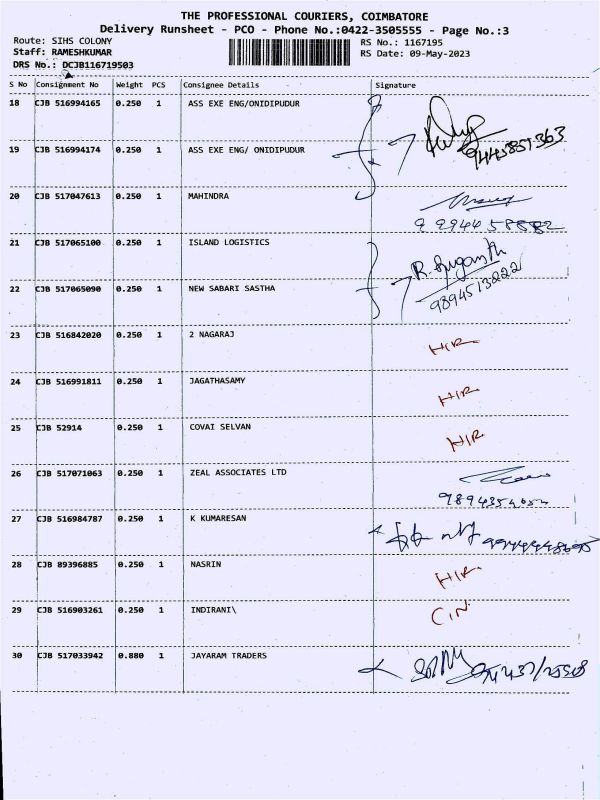 THE PROFESSIONAL COURIERS, COIMBATORE
Delivery Runsheet - PCO - Phone No.:0422-3505555 - Page No.:3
Route: SIHS COLONY
RS No.: 1167195
Staff: RAMESHKUMAR
RS Date: 09-May-2023
DRS No.: DCJB116719503
S No Consignment No Weight PCS Consignee Details Signature
18 CJB 516994165 0.250 1 ASS EXE ENG/ONIDIPUDUR
19 CJB 516994174 0.250 1 ASS EXE ENG/ ONIDIPUDUR 9445851363
20 CJB 517047613 0.250 1 MAHINDRA
9994458882
21 CJB 517065100 0.250 1 ISLAND LOGISTICS
R. Suganth
22 CJB 517065090 0.250 1 NEW SABARI SASTHA 9894513222
23 CJB 516842020 0.250 1 2 NAGARAJ HIR
24 CJB 516991811 0.250 1 JAGATHASAMY HIR
25 CJB 52914 0.250 1 COVAI SELVAN HIR
26 CJB 517071063 0.250 1 ZEAL ASSOCIATES LTD
27 CJB 516984787 0.250 1 K KUMARESAN
28 CJB 89396885 0.250 1 NASRIN HIR
29 CJB 516903261 0.250 1 INDIRANI\ C.N
30 CJB 517033942 0.880 1 JAYARAM TRADERS